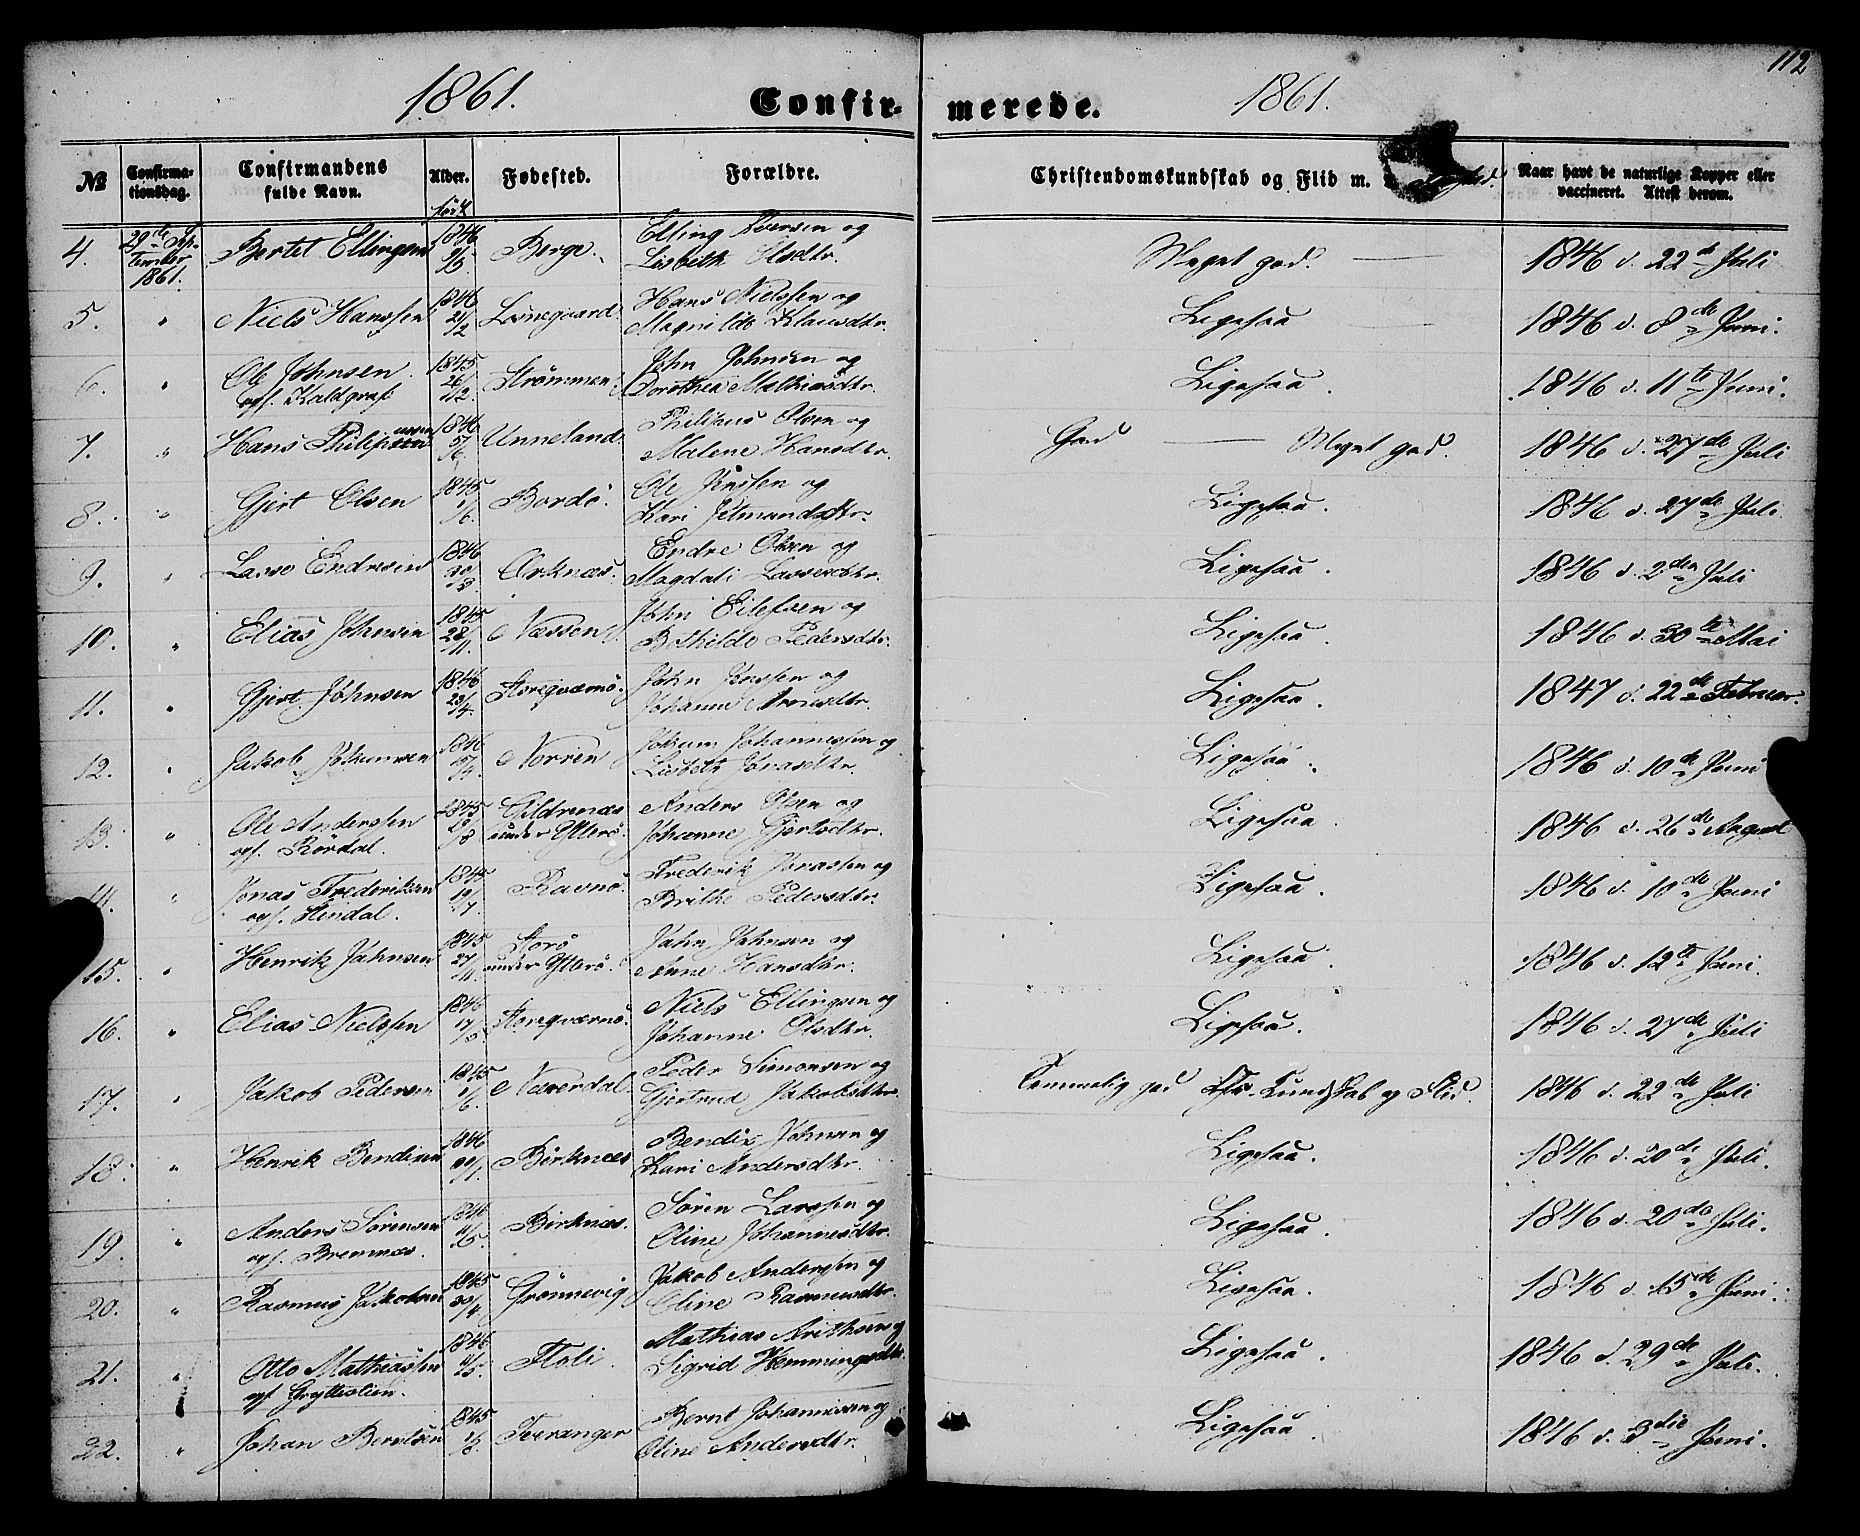 112
1861.
Confir-
merede.
1861.
№
Confirma-
tionsdag.
Confirmandens
fulde Navn.
Alder.
Fødested.
Forældre.
Christendomskundskab og Flid m.
Naar havt de naturlige Kopper eller
vaccineret. Attest derom.
født
4. 29de Sep-
tember
1861. Bertel Ellingsen 1846 Berge. Elling Iversen og
Lisbeth Olsdtr. Meget god. 1846 d. 22d Juli
5. " Niels Hanssen 1846 21/2 Hans Nielssen og
Magnilde Klausdtr. Ligesaa 1846 d. 8de Juni.
6. " Ole Johnsen
opf. Kaldgraf 1845 26/12 Strømmen. John Johnsen og
Dorothea Mathiasdtr. Ligesaa. 1846 d. 11te Juni.
7. " Hans Philipussen 1846 5/6 Unneland. Philipus Olsen og
Malene Hansdtr. God Meget god. 1846 d. 27de Juli
8. " Gjert Olsen 1845 1/6 Bordø. Ole Jenssen og
Kari Jetmundsdtr. Ligesaa. 1846 d. 27de Juli
9. " Lasse Endresen 1846 Arknæs. Endre Olsen og
Magdali Lassesdtr. Ligesaa. 1846 d. 2den Juli
10. " Elias Johnsen 1845 28/11. Næssen. John Eilefsen og
Bothilde Pedersdtr. Ligesaa. 1846 d. 30te Mai
11. " Gjert Johnsen 1846 23/4. Storeqværnø. John Jenssen og
Johanne Arnesdtr. Ligesaa. 1847 d. 22de Februar.
12. " Jakob Jokumsen 1846 Norren Jokum Johannessen og
Lisbeth Jonasdtr. Ligesaa. 1846 d. 10de Juni
13. " Ole Anderssen
opf. Rørdal. 1845 Gildrenæs
under Ytterø. Anders Olsen og
Johanne Gjertsdtr. Ligesaa. 1846 d. 26de August
14. " Jonas Frederiksen
opf. Stendal. 1845 Ravnø. Frederik Jonassen og
Brithe Pedersdtr. Ligesaa. 1846 d. 10de Juni
15. " Henrik Jahnsen 1845 27/11. Storø
under Ytterø. Jahn Jahnsen og
Anne Hansdtr. Ligesaa. 1846 d. 12te Juni.
16. " Elias Nielssen 1846 17/5 Storeqværnø. Niels Ellingsen og
Johanne Olsdtr. Ligesaa. 1846 d. 27de Juli
17. " Jakob Pedersen 1845 1/6. Naverdal. Peder Simonsen og
Gjertrud Jakobsdtr. Temmelig god Chr. Kundskab og Flid. 1846 d. 22de Juli
18. " Henrik Bendixen 1846 Birknæs Bendix Johnsen og
Kari Andersdtr. Ligesaa. 1846 d. 20de Juli.
19. " Anders Sørensen
opf. Bremnæs. 1846 Birknæs. Søren Larssen og
Oline Johannesdtr. Ligesaa. 1846 d. 20de Juli.
20. " Rasmus Jakobsen 1845 30/4 Grønnevig Jakob Anderssen og
Oline Rasmusdtr. Ligesaa. 1846 d. 15de Juni.
21. " Otto Mathiassen
opf. Gryttelien. 1846 Stoli. Mathias og
Sigrid Hemmingsdtr. Ligesaa. 1846 d. 29de Juli.
22. " Johan Berntsen 1845 Teranger Bernt Johannessen og
Oline Andersdtr. Ligesaa. 1846 d. 3die Juni.